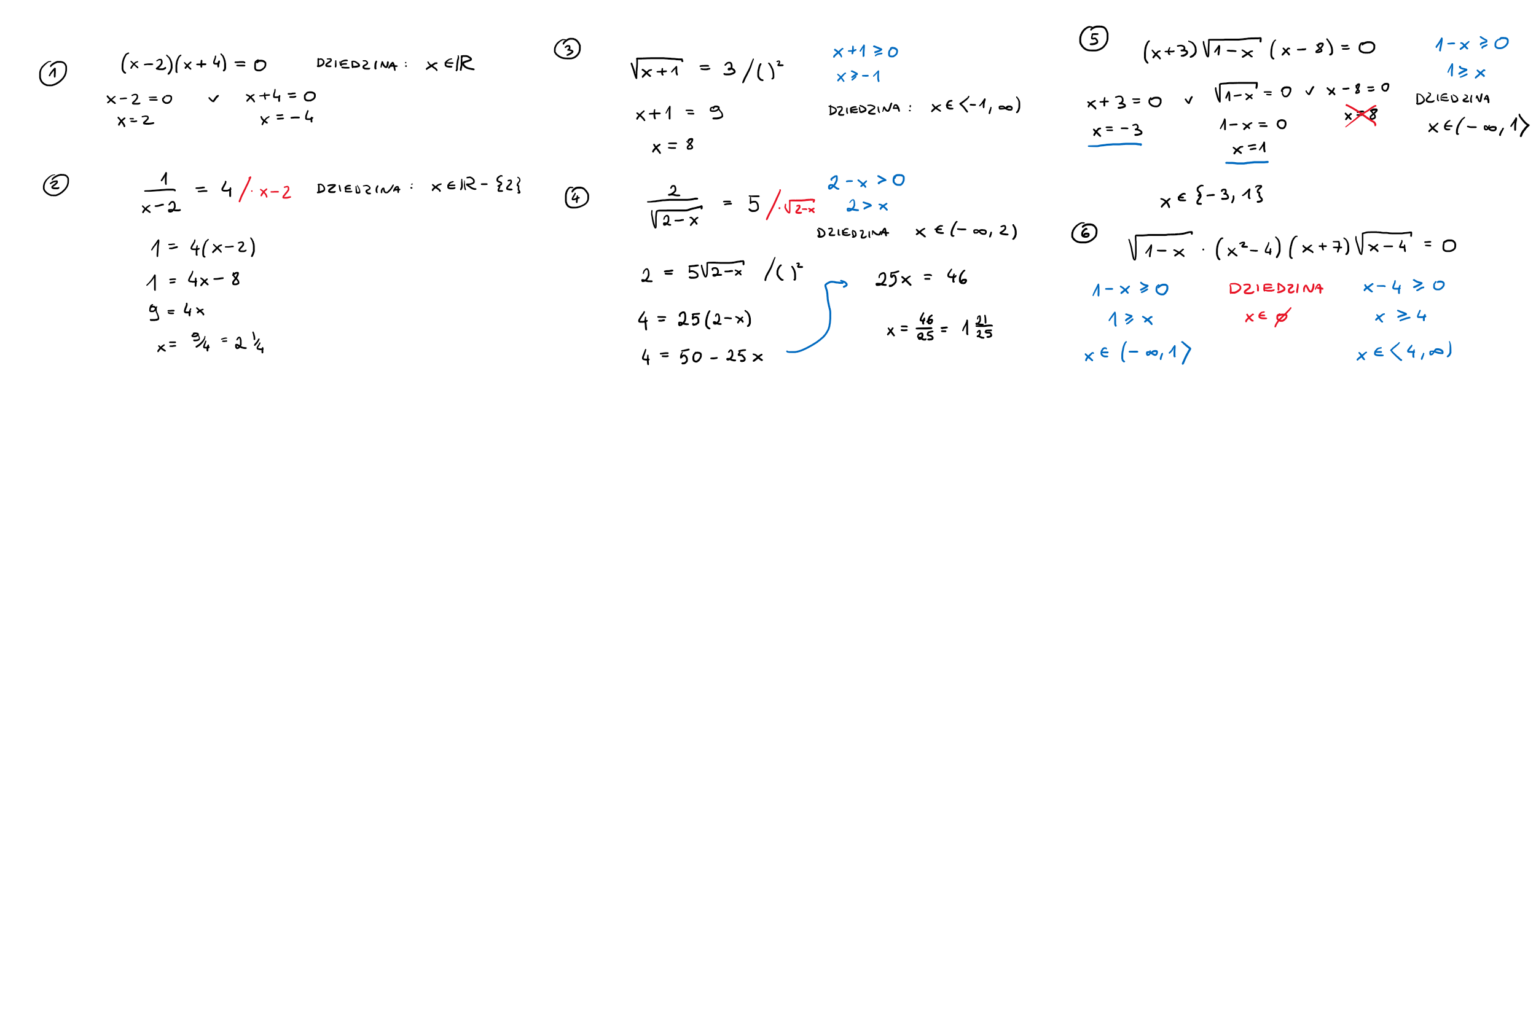 ① (x-2)(x+4) = 0 DZIEDZINA: x∈ℝ
x-2=0 ∨ x+4=0
x=2 x=-4
② 1/(x-2) = 4 /· x-2 DZIEDZINA: x∈ℝ-{2}
1 = 4(x-2)
1 = 4x-8
9 = 4x
x = 9/4 = 2 1/4
③ √(x+1) = 3 /( )² x+1≥0
x≥-1
x+1 = 9 DZIEDZINA: x∈<-1,∞)
x = 8
④ 2/√(2-x) = 5 /·√(2-x) 2-x>0
2>x
DZIEDZINA x∈(-∞,2)
2 = 5√(2-x) /( )²
4 = 25(2-x)
4 = 50-25x
25x = 46
x = 46/25 = 1 21/25
⑤ (x+3)√(1-x) (x-8) = 0 1-x≥0
1≥x
x+3=0 ∨ √(1-x) = 0 ∨ x-8=0 DZIEDZINA
x=-3 1-x=0 x=8 x∈(-∞,1>
x=1
x∈{-3,1}
⑥ √(1-x) · (x²-4)(x+7)√(x-4) = 0
1-x≥0 DZIEDZINA x-4≥0
1≥x x∈∅ x≥4
x∈(-∞,1> x∈<4,∞)